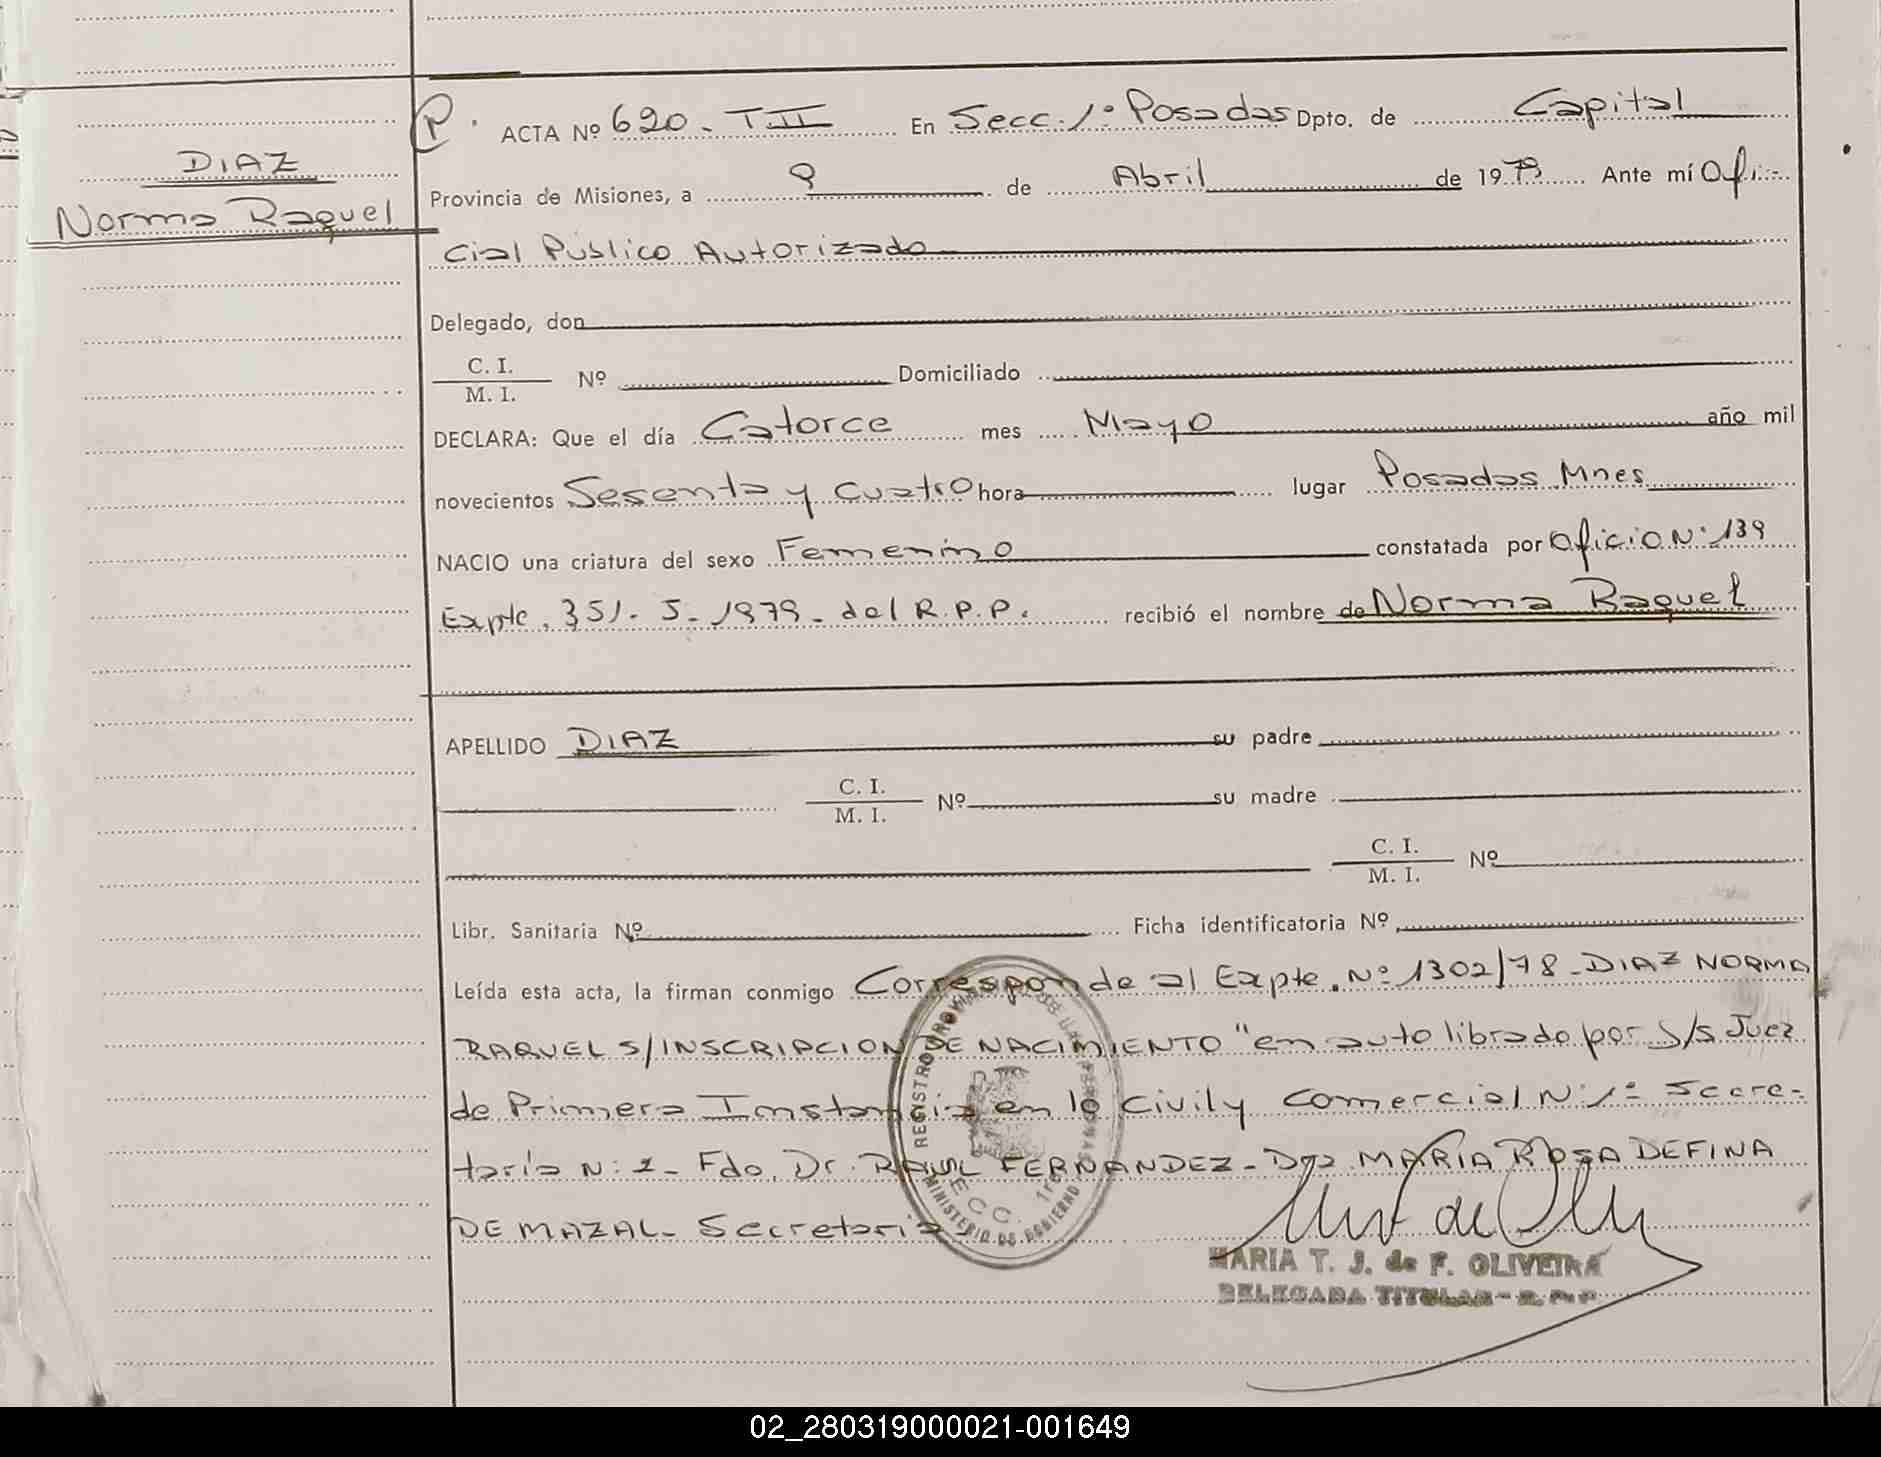 DIAZ
Norma Raquel
P. ACTA Nº 620. TII En Secc. 1º Posadas Dpto. de Capital
Provincia de Misiones, a 9 de Abril de 1979 Ante mí Ofi-
cial Público Autorizado
Delegado, don
C. I. / M. I. Nº Domiciliado
DECLARA: Que el día Catorce mes Mayo año mil
novecientos Sesenta y cuatro hora lugar Posadas Mnes
NACIO una criatura del sexo Femenino constatada por Oficio Nº 139
Expte. 351. J. 1979. del R.P.P. recibió el nombre de Norma Raquel
APELLIDO DIAZ su padre
C. I. / M. I. Nº su madre
C. I. / M. I. Nº
Libr. Sanitaria Nº Ficha identificatoria Nº
Leída esta acta, la firman conmigo Corresponde al Expte. Nº 1302/78 - DIAZ NORMA
RAQUEL S/INSCRIPCION DE NACIMIENTO" en auto librado por S/S Juez
de Primera Instancia en lo Civil y Comercial Nº 1º Secre-
taría Nº 2 - Fdo. Dr. RAUL FERNANDEZ - Dra. MARIA ROSA DEFINA
DE MAZAL - Secretaria
REGISTRO PROVINCIAL DE LAS PERSONAS
MINISTERIO DE GOBIERNO
SECC. 1ra
MARIA T. J. de F. OLIVEIRA
DELEGADA TITULAR - R. P. P.
02_280319000021-001649